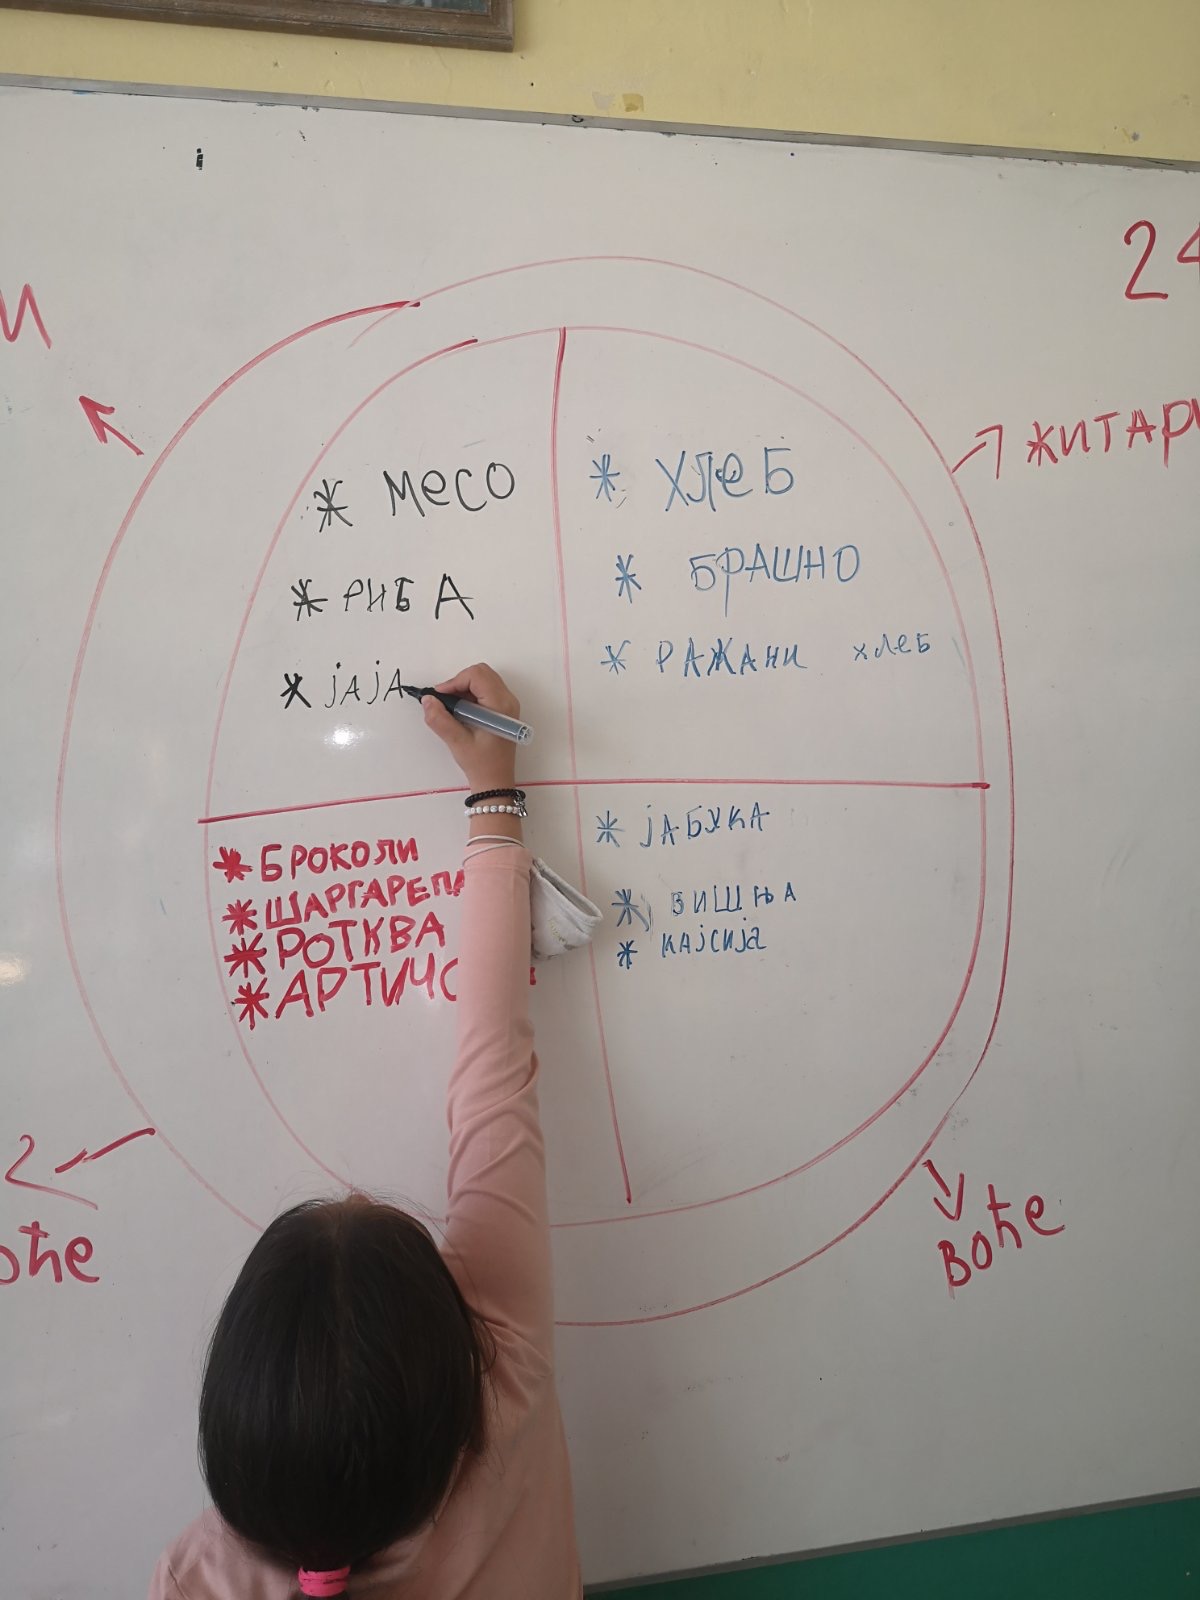 24
ЖИТАРИ
* месо
* РИБА
* јАјА
* ХЛеБ
* БРАШНО
* РАЖАНИ хлеБ
* БРОКОЛИ
* ШАРГАРЕПА
* РОТКВА
* јАБУКА
* ВИШЊА
* КАјСИЈа
воће